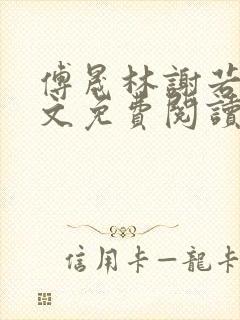 傅晟林謝若
文免費閱讀
信用卡—龍卡